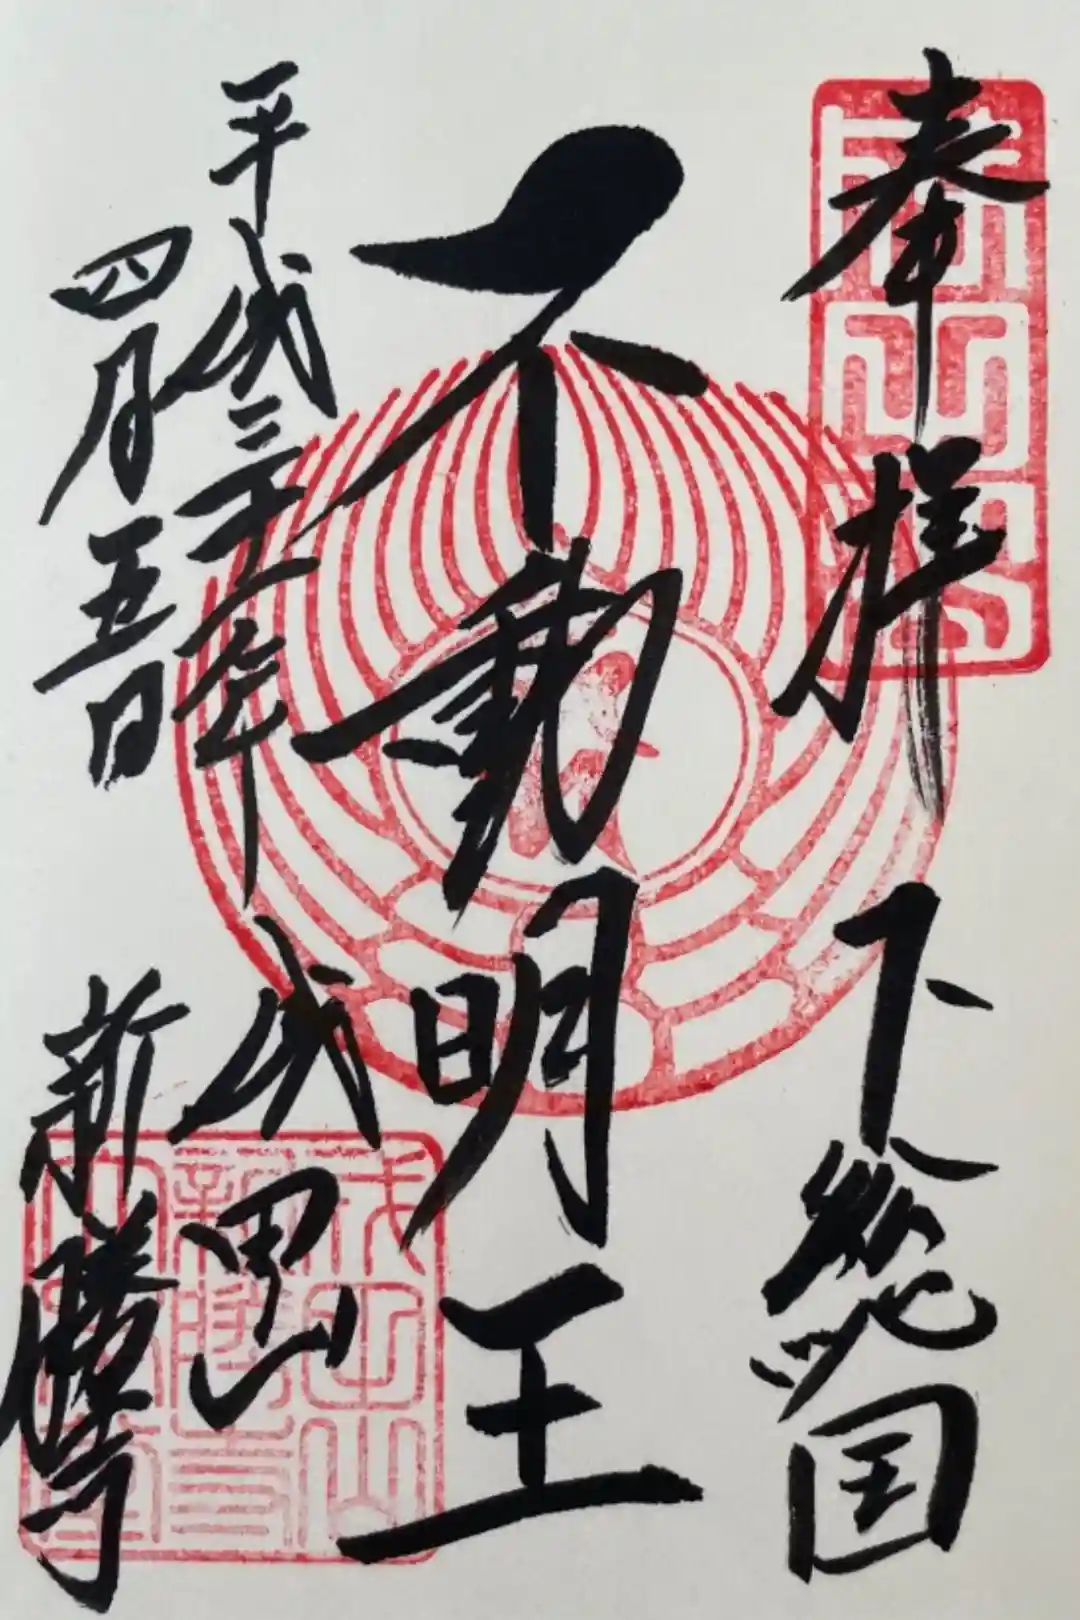 奉拝 下総国
不動明王
平成三十一年 成田山
四月五日 新勝寺
成田山
新勝寺